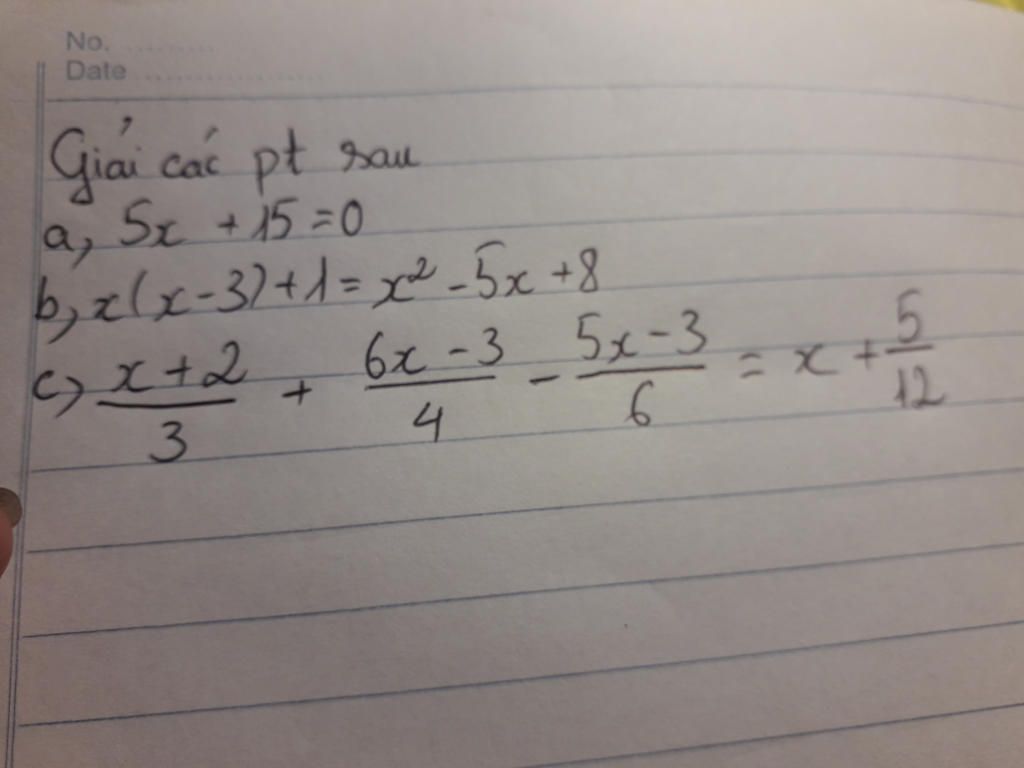 No. ..........
Date ....................
Giải các pt sau
a, 5x + 15 = 0
b, x(x - 3) + 1 = x² - 5x + 8
c, (x + 2)/3 + (6x - 3)/4 - (5x - 3)/6 = x + 5/12